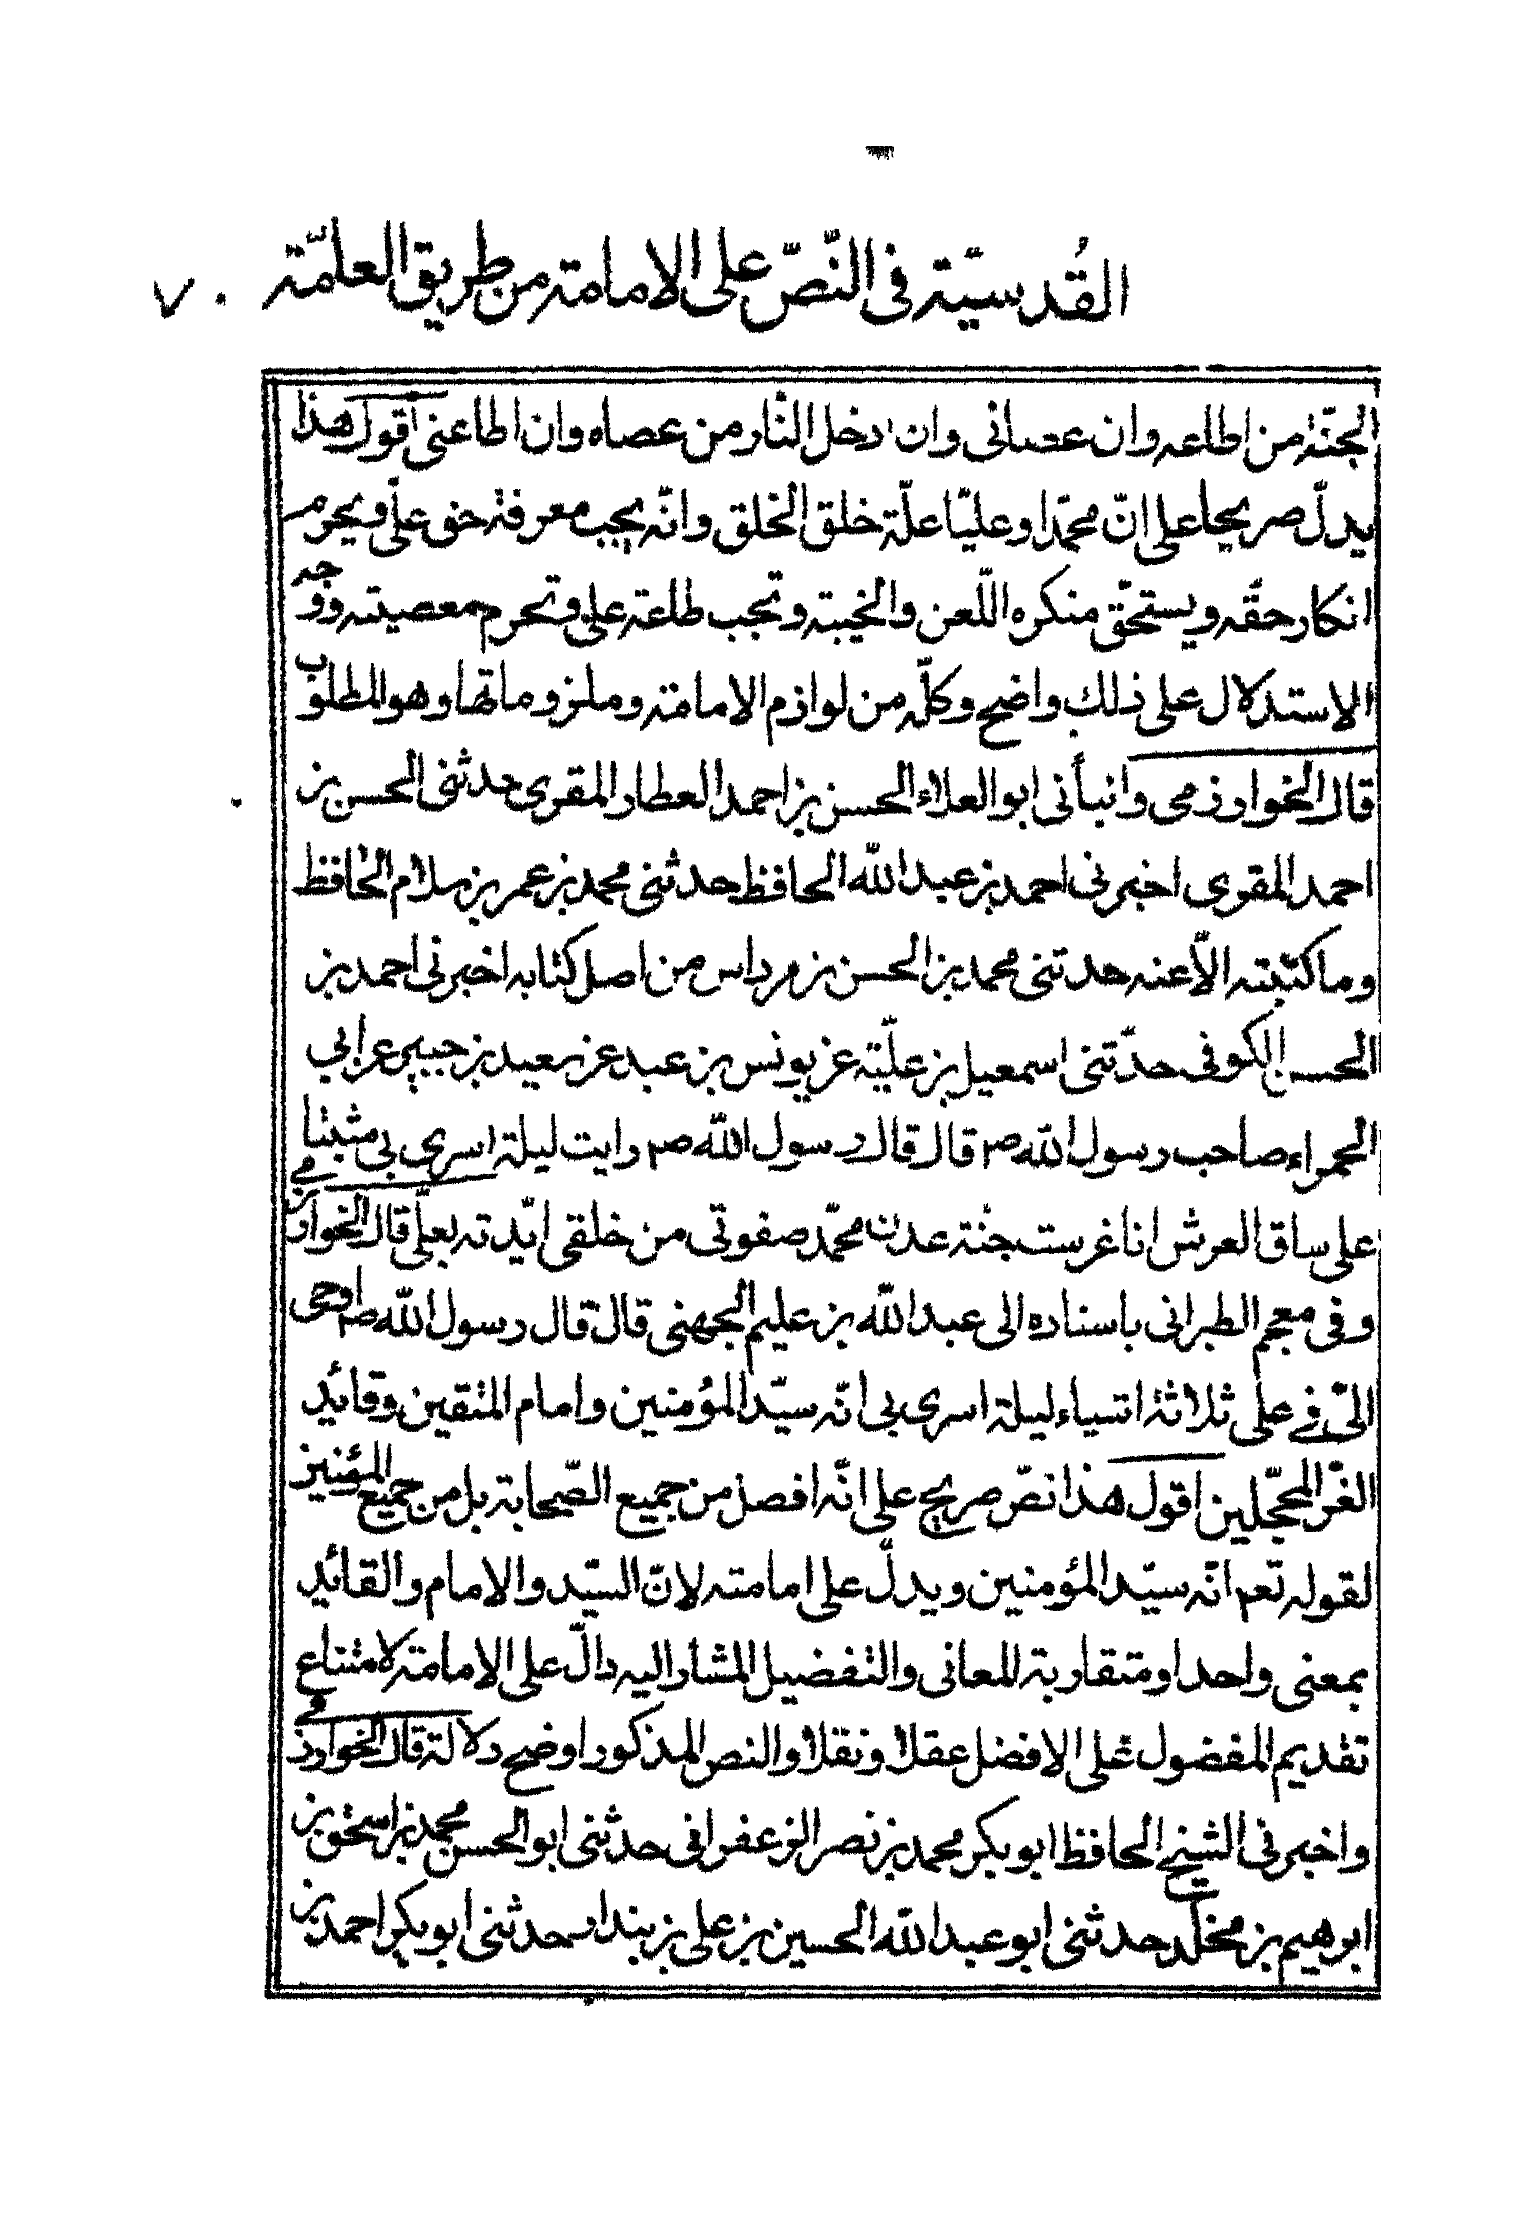 القُدسيّة فى النّصّ على الامامة من طريق العامّة ٧٠
الجنّة من اطاعه وان عصانى وان ادخل النّار من عصاه وان اطاعنى اقول هذا
يدلّ صريحا على انّ محمّدا وعليّا علّة خلق الخلق وانّه يجب معرفة حق علىّ ويحرم
انكار حقّه ويستحقّ منكره اللّعن والخيبة وتجب طاعة على وتحرم معصيته ووجه
الاستدلال على ذلك واضح وكلّه من لوازم الامامة وملزوماتها وهو المطلوب
قال الخوارزمى وانبأنى ابو العلاء الحسن بن احمد العطار المقرى حدثنى الحسن بن
احمد المقرى اخبرنى احمد بن عبد الله الحافظ حدثنى محمد بن عمر بن سلام الحافظ
وما كتبته الّا عنه حدثنى محمد بن الحسن بن مرداس من اصل كتابه اخبرنى احمد بن
الحسن الكوفى حدّثنى اسمعيل بن عليّة عن يونس بن عبد عن سعيد بن جبير عن ابي
الحمراء صاحب رسول الله صم قال قال رسول الله صم رايت ليلة اسرى بى مثبتا
على ساق العرش انا غرست جنة عدن محمّد صفوتى من خلقى ايّدته بعلىّ قال الخوارزمى
وفى معجم الطبرانى باسناده الى عبد الله بن عليم الجهنى قال قال رسول الله صم اوحى
الىّ فى على ثلاثة اشياء ليلة اسرى بى انّه سيّد المؤمنين وامام المتقين وقائد
الغرّ المحجّلين اقول هذا نصّ صريح على انّه افضل من جميع الصّحابة بل من جميع المؤمنين
لقوله نعم انّه سيّد المؤمنين ويدلّ على امامته لانّ السيّد والامام والقائد
بمعنى واحد او متقاربة المعانى والتفضيل المشار اليه دالّ على الامامة لامتناع
تقديم المفضول على الافضل عقلا ونقلا والنص المذكور اوضح دلالة قال الخوارزمى
واخبرنى الشيخ الحافظ ابو بكر محمد بن نصر الزعفرانى حدثنى ابو الحسن محمد بن اسحق بن
ابرهيم بن مخلد حدثنى ابو عبد الله الحسين بن على بن بندار حدثنى ابو بكر احمد بن